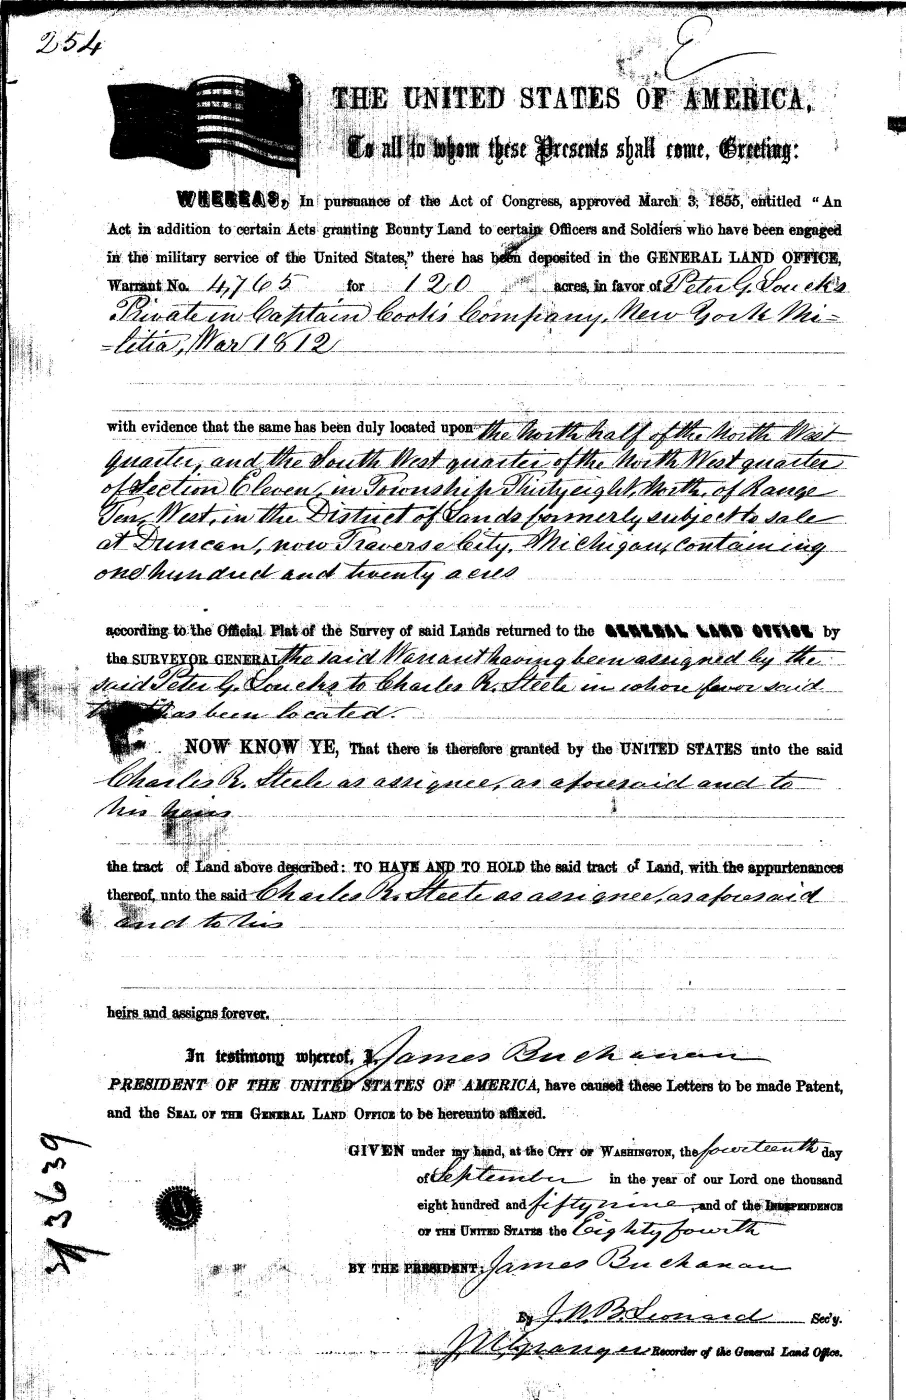 254
E
THE UNITED STATES OF AMERICA,
To all to whom these Presents shall come, Greeting:
WHEREAS, In pursuance of the Act of Congress, approved March 3, 1855, entitled "An
Act in addition to certain Acts granting Bounty Land to certain Officers and Soldiers who have been engaged
in the military service of the United States," there has been deposited in the GENERAL LAND OFFICE,
Warrant No. 4,765 for 120 acres, in favor of Peter G. Loucks
Private in Captain Cook's Company, New York Mi=
=litia, War 1812
with evidence that the same has been duly located upon the North half of the North West
quarter, and the South West quarter of the North West quarter
of Section Eleven, in Township Thirty eight, North, of Range
Ten, West, in the District of Lands formerly subject to sale
at Duncan, now Traverse City, Michigan, containing
one hundred and twenty acres
according to the Official Plat of the Survey of said Lands returned to the GENERAL LAND OFFICE by
the SURVEYOR GENERAL the said Warrant having been assigned by the
said Peter G. Loucks to Charles R. Steele in whose favor said
has been located.
NOW KNOW YE, That there is therefore granted by the UNITED STATES unto the said
Charles R. Steele as assignee, as aforesaid and to
his heirs
the tract of Land above described: TO HAVE AND TO HOLD the said tract of Land, with the appurtenances
thereof, unto the said Charles R. Steele as assignee, as aforesaid
and to his
heirs and assigns forever.
In testimony whereof, I, James Buchanan
PRESIDENT OF THE UNITED STATES OF AMERICA, have caused these Letters to be made Patent,
and the SEAL OF THE GENERAL LAND OFFICE to be hereunto affixed.
GIVEN under my hand, at the CITY OF WASHINGTON, the fourteenth day
of September in the year of our Lord one thousand
eight hundred and fifty nine, and of the INDEPENDENCE
OF THE UNITED STATES the Eighty fourth
BY THE PRESIDENT: James Buchanan
By J. A. B. Leonard Sec'y.
J. N. Granger Recorder of the General Land Office.